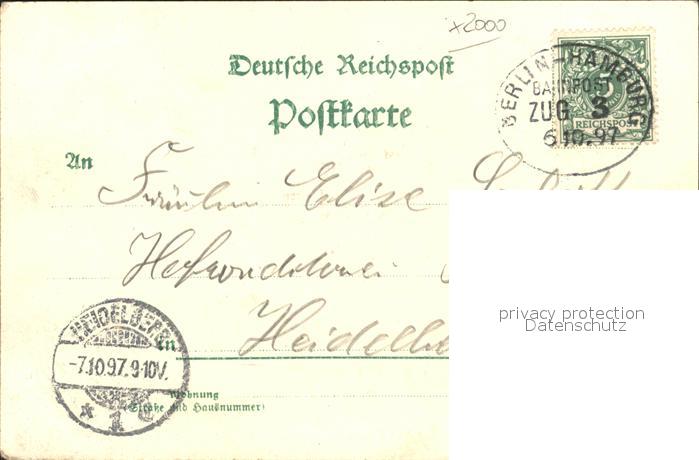 x2000
Deutsche Reichspost
Postkarte
BERLIN-HAMBURG
BAHNPOST
ZUG 3
6.10.97
REICHSPOST
An
Fräulein Elise
Hofconditorei
in Heidelbe
HEIDELBERG
-7.10.97.9-10V.
* 1
Wohnung
(Straße und Hausnummer)
privacy protection
Datenschutz